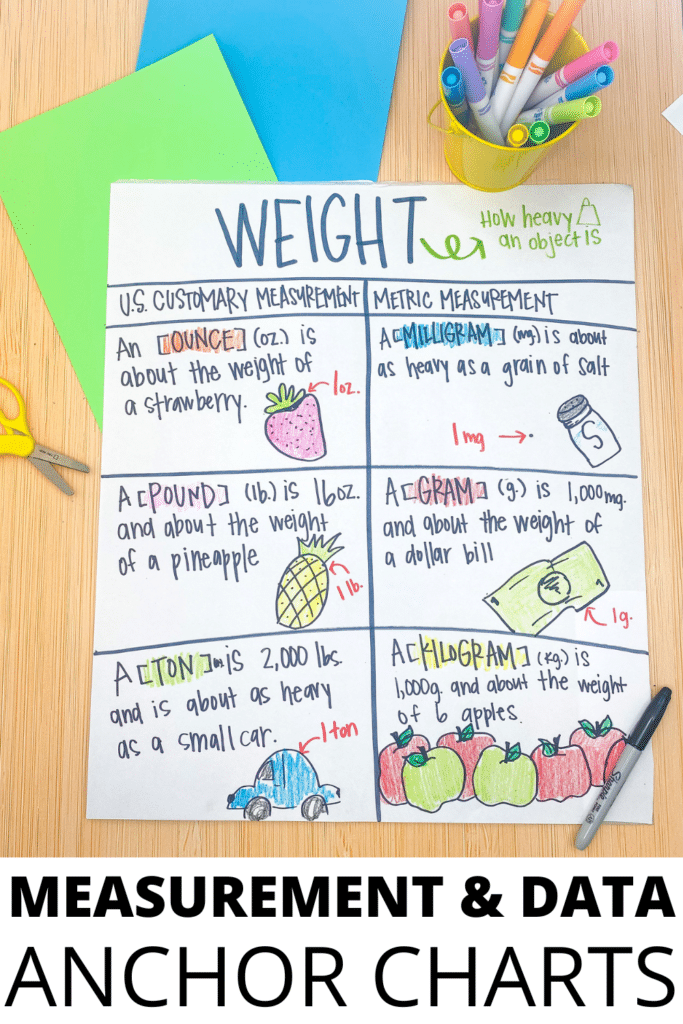 WEIGHT
How heavy
an object is
U.S. CUSTOMARY MEASUREMENT
METRIC MEASUREMENT
An [OUNCE] (oz.) is
about the weight of
a strawberry.
1oz.
A [MILLIGRAM] (mg) is about
as heavy as a grain of salt
1mg
S
A [POUND] (lb.) is 16oz.
and about the weight
of a pineapple
1 lb.
A [GRAM] (g.) is 1,000mg.
and about the weight of
a dollar bill
1g.
A [TON] is 2,000 lbs.
and is about as heavy
as a small car.
1 ton
A [KILOGRAM] (kg.) is
1,000g. and about the weight
of 6 apples.
Sharpie
MEASUREMENT & DATA
ANCHOR CHARTS